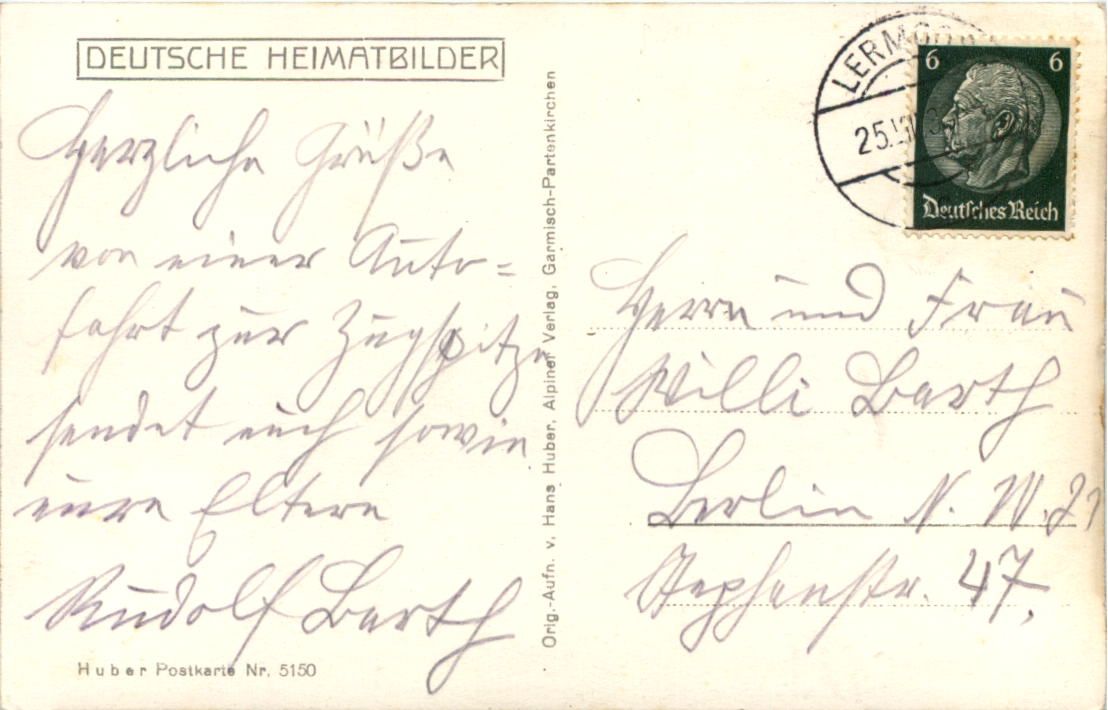 DEUTSCHE HEIMATBILDER
Herzliche Grüße
von einer Auto=
fahrt zur Zugspitze
sendet euch sowie
eure Eltern
Rudolf Barth
Huber Postkarte Nr. 5150
Orig.-Aufn. v. Hans Huber, Alpiner Verlag, Garmisch-Partenkirchen
LERMOOS
25.
6 6
Deutsches Reich
Herrn und Frau
Willi Barth
Berlin N. W. 21
Stephanstr. 47.